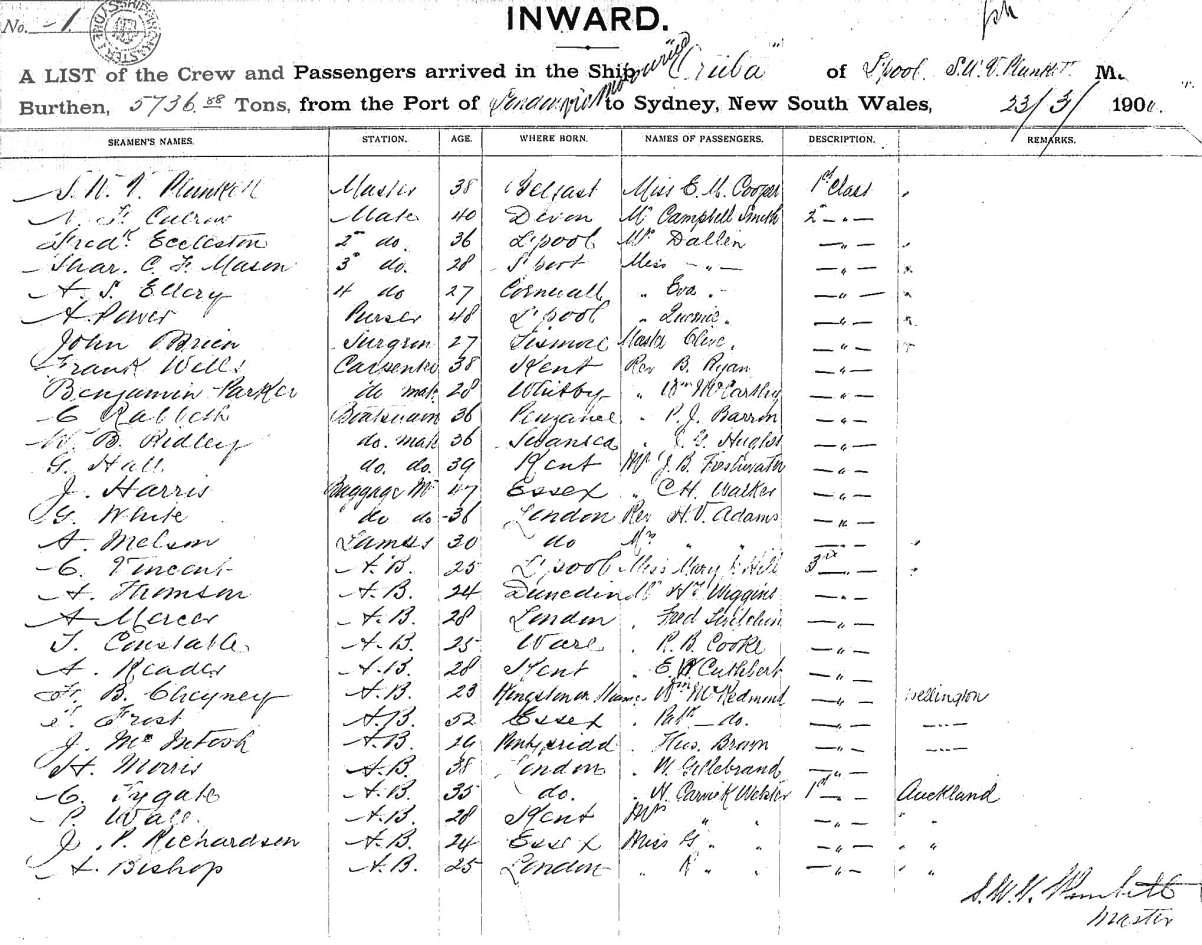 No. 1
INWARD.
A LIST of the Crew and Passengers arrived in the Ship "Oruba" of L'pool S.W.V. Plunkett M.
Burthen, 5736.88 Tons, from the Port of London via to Sydney, New South Wales, 23/3/1900.
SEAMEN'S NAMES. STATION. AGE. WHERE BORN. NAMES OF PASSENGERS. DESCRIPTION. REMARKS.
S. W. V. Plunkett Master 38 Belfast Miss E. M. Cooper 1st Class
Mate 40 Devon Mr Campbell Smith 2 " —
Fredk Eccleston 2 do. 36 L'pool Mrs Dallen — " —
Chas. C. F. Mason 3 do. 28 S'port Miss — " — — " —
A. S. Ellery 4 do 27 Cornwall " Eva " — " —
A. Power Purser 48 L'pool " " — " —
John Brien Surgeon 27 Lismore Master Clive " — " —
Frank Wells Carpenter 38 Kent Rev B. Ryan — " —
Benjamin Parker do mate 28 Whitby " Wm McCarthy — " —
C Rabbeth Boatswain 36 Penzance " P. J. Barron — " —
W. B. Ridley do. mate 36 Swansea " Hughes — " —
G. Hall do. do. 39 Kent Mr J. B. Freshwater — " —
J. Harris Baggage Mr 47 Essex " C H. Walker — " —
G. White do do 36 London Rev H. V. Adams — " —
A. Melson Lamps 30 do Mrs " " — " —
C. Vincent A.B. 25 L'pool Miss Mary Hill 3rd — " —
A. Thomson A.B. 24 Dunedin Mr Hy Wiggins — " —
A Mercer A.B. 28 London " Fred — " —
T. Constable A.B. 25 Ware " R. B. Cooke — " —
A. Reader A.B. 28 Kent " E. W Cuthbert — " —
Fr. B. Cheyney A.B. 23 Kingston on Thames " Wm McRedmond — " — Wellington
Frost A.B. 52 Essex " Patk — do. — " — — " —
J. McIntosh A.B. 26 Pontypridd " Thos. Brown — " — — " —
H. Morris A.B. 38 London " W. Gillebrand — " —
C. Tygate A.B. 35 do. " N. Carrick Webster 1st — " — Auckland
P. Wall A.B. 28 Kent Mrs " " — " — " "
J. P. Richardson A.B. 24 Essex Miss G " " — " — " "
A. Bishop A.B. 25 London " K " " — " — " "
S. W. V. Plunkett
Master